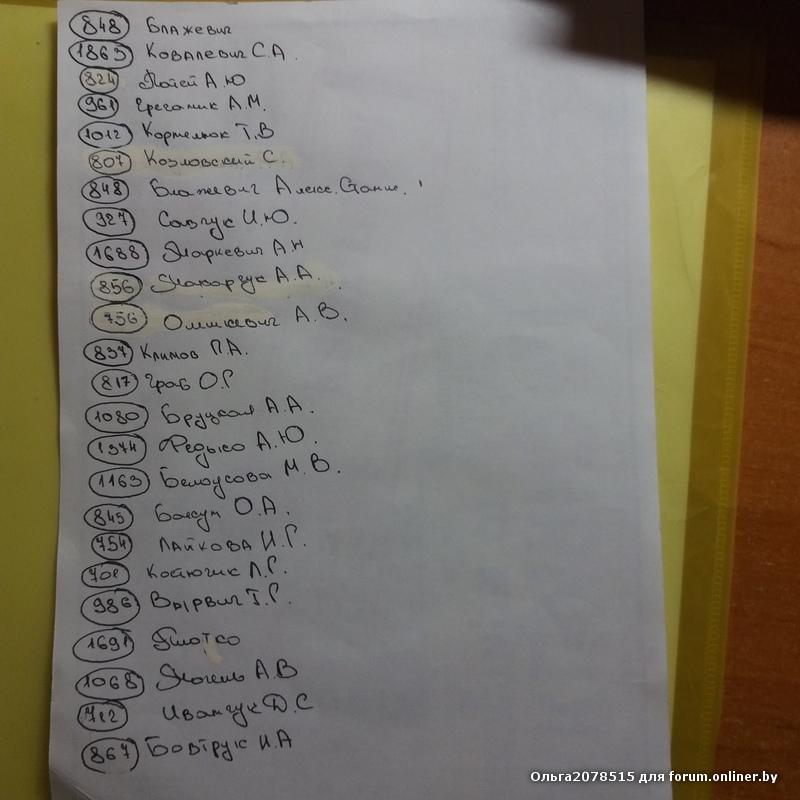 848 Блажевич
1863 Ковалевич С.А.
824 А.Ю
961 А.М.
1012 Кормелюк Т.В
807 Козловский С.
848 Блажевич Алекс.
927 Савчук И.Ю.
1688 Маркевич А.Н
856 Макарчук А.А.
756 Олишкевич А.В.
837 Климов П.А.
817 Граб О.Г
1080 Бруцкая А.А.
1374 Федько А.Ю.
1163 Белоусова М.В.
845 О.А.
754 Лайкова И.Г.
708 Костючик Л.Г.
986 Вырвич Т.Г.
1691
1068 А.В
712 Иванчук Д.С
867 Бовтрук И.А
Ольга2078515 для forum.onliner.by